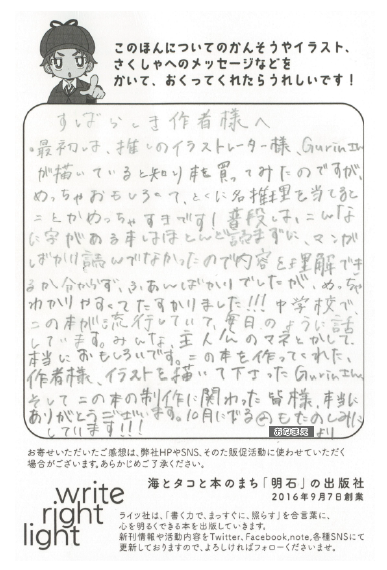 このほんについてのかんそうやイラスト、
さくしゃへのメッセージなどを
かいて、おくってくれたらうれしいです！
すばらしき作者様へ
・最初は、推しのイラストレーター様、Gurin.さん
が描いていると知り本を買ってみたのですが、
めっちゃおもしろくて、とくに名推理を当てると
ことがめっちゃすきです！普段は、こんな
に字がある本はほとんど読まずに、マンガ
しばかり読んでなかったので内容を理解でき
るか分からず、ふあんばかりでしたが、めっちゃ
わかりやすくてたすかりました!!!中学校で
この本が流行していて、毎日のように話
しています。みんな、主人公のマネとかして、
本当におもしろいです。この本を作ってくれた、
作者様、イラストを描いて下さったGurin.さん
そしてこの本の制作に関わった皆様、本当に
ありがとうございます。10月にでる④もたのしみに
しています!!!
おなまえ
より
お寄せいただいたご感想は、弊社HPやSNS、そのた販促活動に使わせていただく
場合がございます。あらかじめご了承ください。
write
right
light
海とタコと本のまち「明石」の出版社
2016年9月7日創業
ライツ社は、「書く力で、まっすぐに、照らす」を合言葉に、
心を明るくできる本を出版していきます。
新刊情報や活動内容をTwitter、Facebook、note、各種SNSにて
更新しておりますので、よろしければフォローくださいませ。